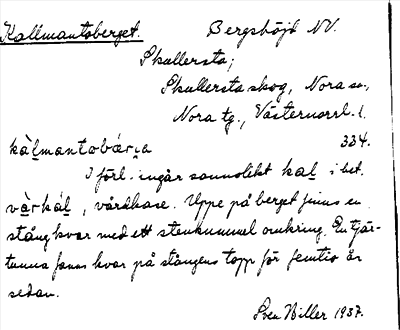 Kallmantoberget. Bergshöjd NV.
Skullersta;
Skullersta skog, Nora sn,
Nora tg., Västernorrl. l.
kàl̠mantobær̨a 334.
I förl. ingår sannolikt kal̠ i bet.
vàrkál̠, vårdkase. Uppe på berget finns en
stång kvar med ett stenkummel omkring. En tjär-
tunna fanns kvar på stångens topp för femtio år
sedan.
Sven Biller 1937.